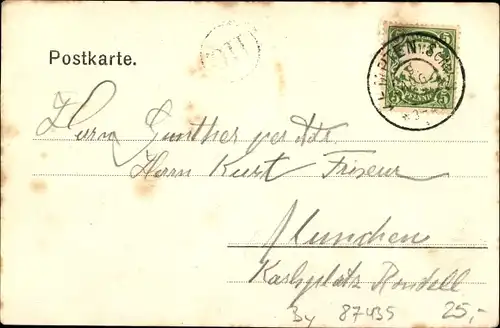 Postkarte.
KEMPTEN (SCHW
5 PFENNIG 5
Herrn Gunther per Adr.
Herrn Kurt Friseur
München
Karlsplatz Rondell
By 87435 25,-